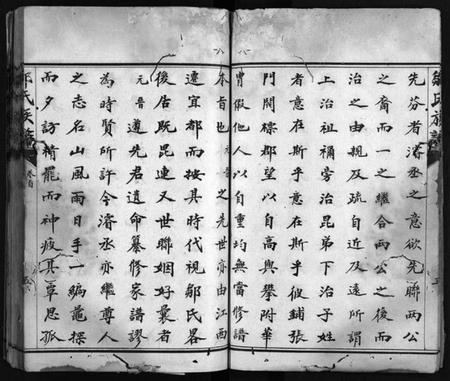 鄒氏族譜
先芬者濬丞之意欲先聯兩公
之裔而一之繼合兩公之後而
治之由親及疏自近及遠所謂
上治祖禰旁治昆弟下治子姓
者意在斯乎意在斯乎彼鋪張
門閥標郡望以自高與攀附華
冑假他人以自重均無當修譜
本旨也之先世亦由江西
遷宜都而按其時代視鄒氏畧
後居既毘連又世聯姻好曩者
元音遵先君遺命纂修家譜謬
為時賢所許今濬丞亦繼尊人
之志名山風雨日手一編蒐採
而夕訪精罷而神疲其覃思孤
氏族譜
卷首